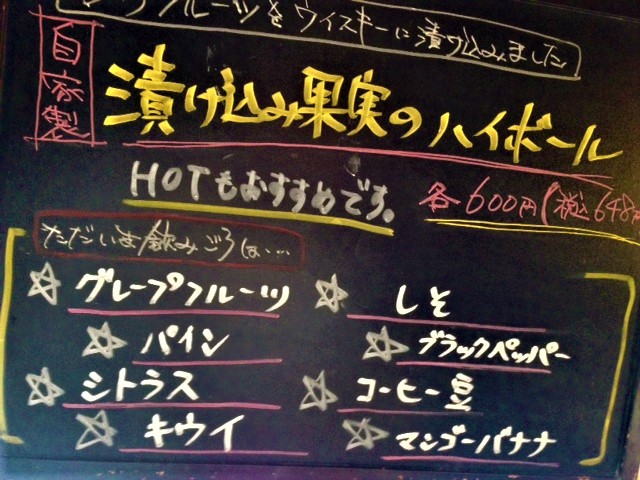 フルーツをウイスキーに漬け込みました
自家製
漬け込み果実のハイボール
HOTもおすすめです。
各600円(税込648
ただいま飲みごろは…
☆グレープフルーツ ☆しそ
☆パイン ☆ブラックペッパー
☆シトラス ☆コーヒー豆
☆キウイ ☆マンゴーバナナ